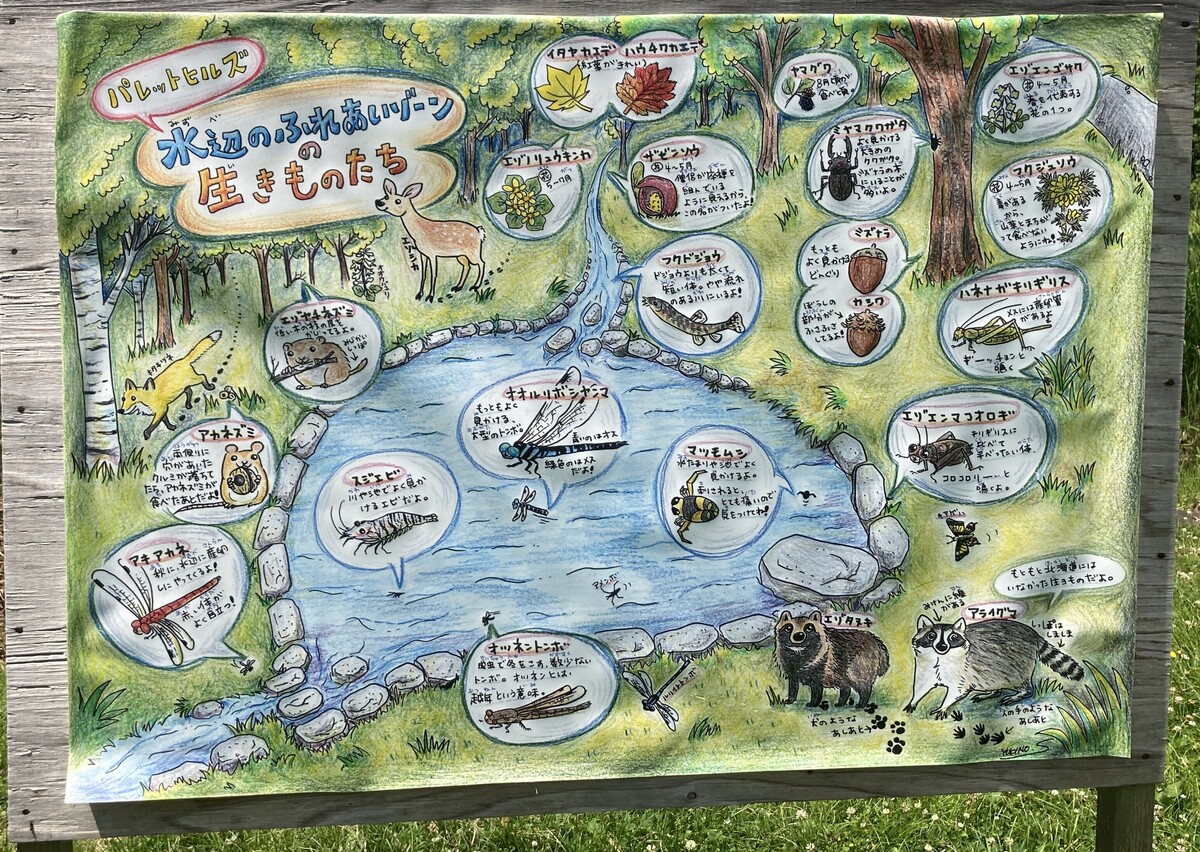 パレットヒルズ
みず べ
水辺のふれあいゾーン
の
生きものたち
イタヤカエデ
ハウチワカエデ
(紅葉がきれい)
ヤマグワ
8月頃が
食べ頃
エゾエンゴサク
花 4~5月
春を代表する
花の1つ。
エゾノリュウキンカ
花
5~7月
ザゼンソウ
花 4~5月
僧侶が座禅を
組んでいる
ように見えるから、
この名がついたよ!
ミヤマクワガタ
よく見かける
大きめの
クワガタ。
ミズナラの木
にいることが
多いよ。
フクジュソウ
花 4~5月
毒がある
から、
山菜とまちがって
食べない
ようにね!
エゾシカ
オオウバユリ
フクドジョウ
ドジョウよりも太くて
短い体。やや流れ
のある川にいるよ!
ミズナラ
もっとも
よく見かける
どんぐり
カシワ
ぼうしの
部分が
ふさふさ
してるよ!
ハネナガキリギリス
メスには産卵管
があるよ
ギーッチョンと
鳴く
エゾヤチネズミ
みじかい
しっぽ
キタキツネ
アカネズミ
両側に
穴があいた
クルミが落ちて
たら、アカネズミが
食べたあとだよ!
オオルリボシヤンマ
もっともよく
見かける、
大型のトンボ。
青いのはオス
緑色のはメス
だよ!
エゾエンマコオロギ
キリギリスに
比べて
平べったい体。
コロコロリーーと
鳴くよ。
スジエビ
川や池でよく見か
けるエビだよ。
マツモムシ
水たまりや池でよく
見かけるよ。
刺されると、
とても痛いので
気をつけてね!
アキアカネ
秋に、水辺に産卵
しにやってくるよ!
赤い体が
よく目立つ!
アメンボ
もともと北海道には
いなかった生きものだよ。
オツネントンボ
成虫で冬をこす、数少ない
トンボ。オツネンとは、
越年という意味。
エゾタヌキ
犬のような
あしあと
みけんに線
がある
アライグマ
しっぽは
しましま
人の手のような
あしあと
YUKINO S